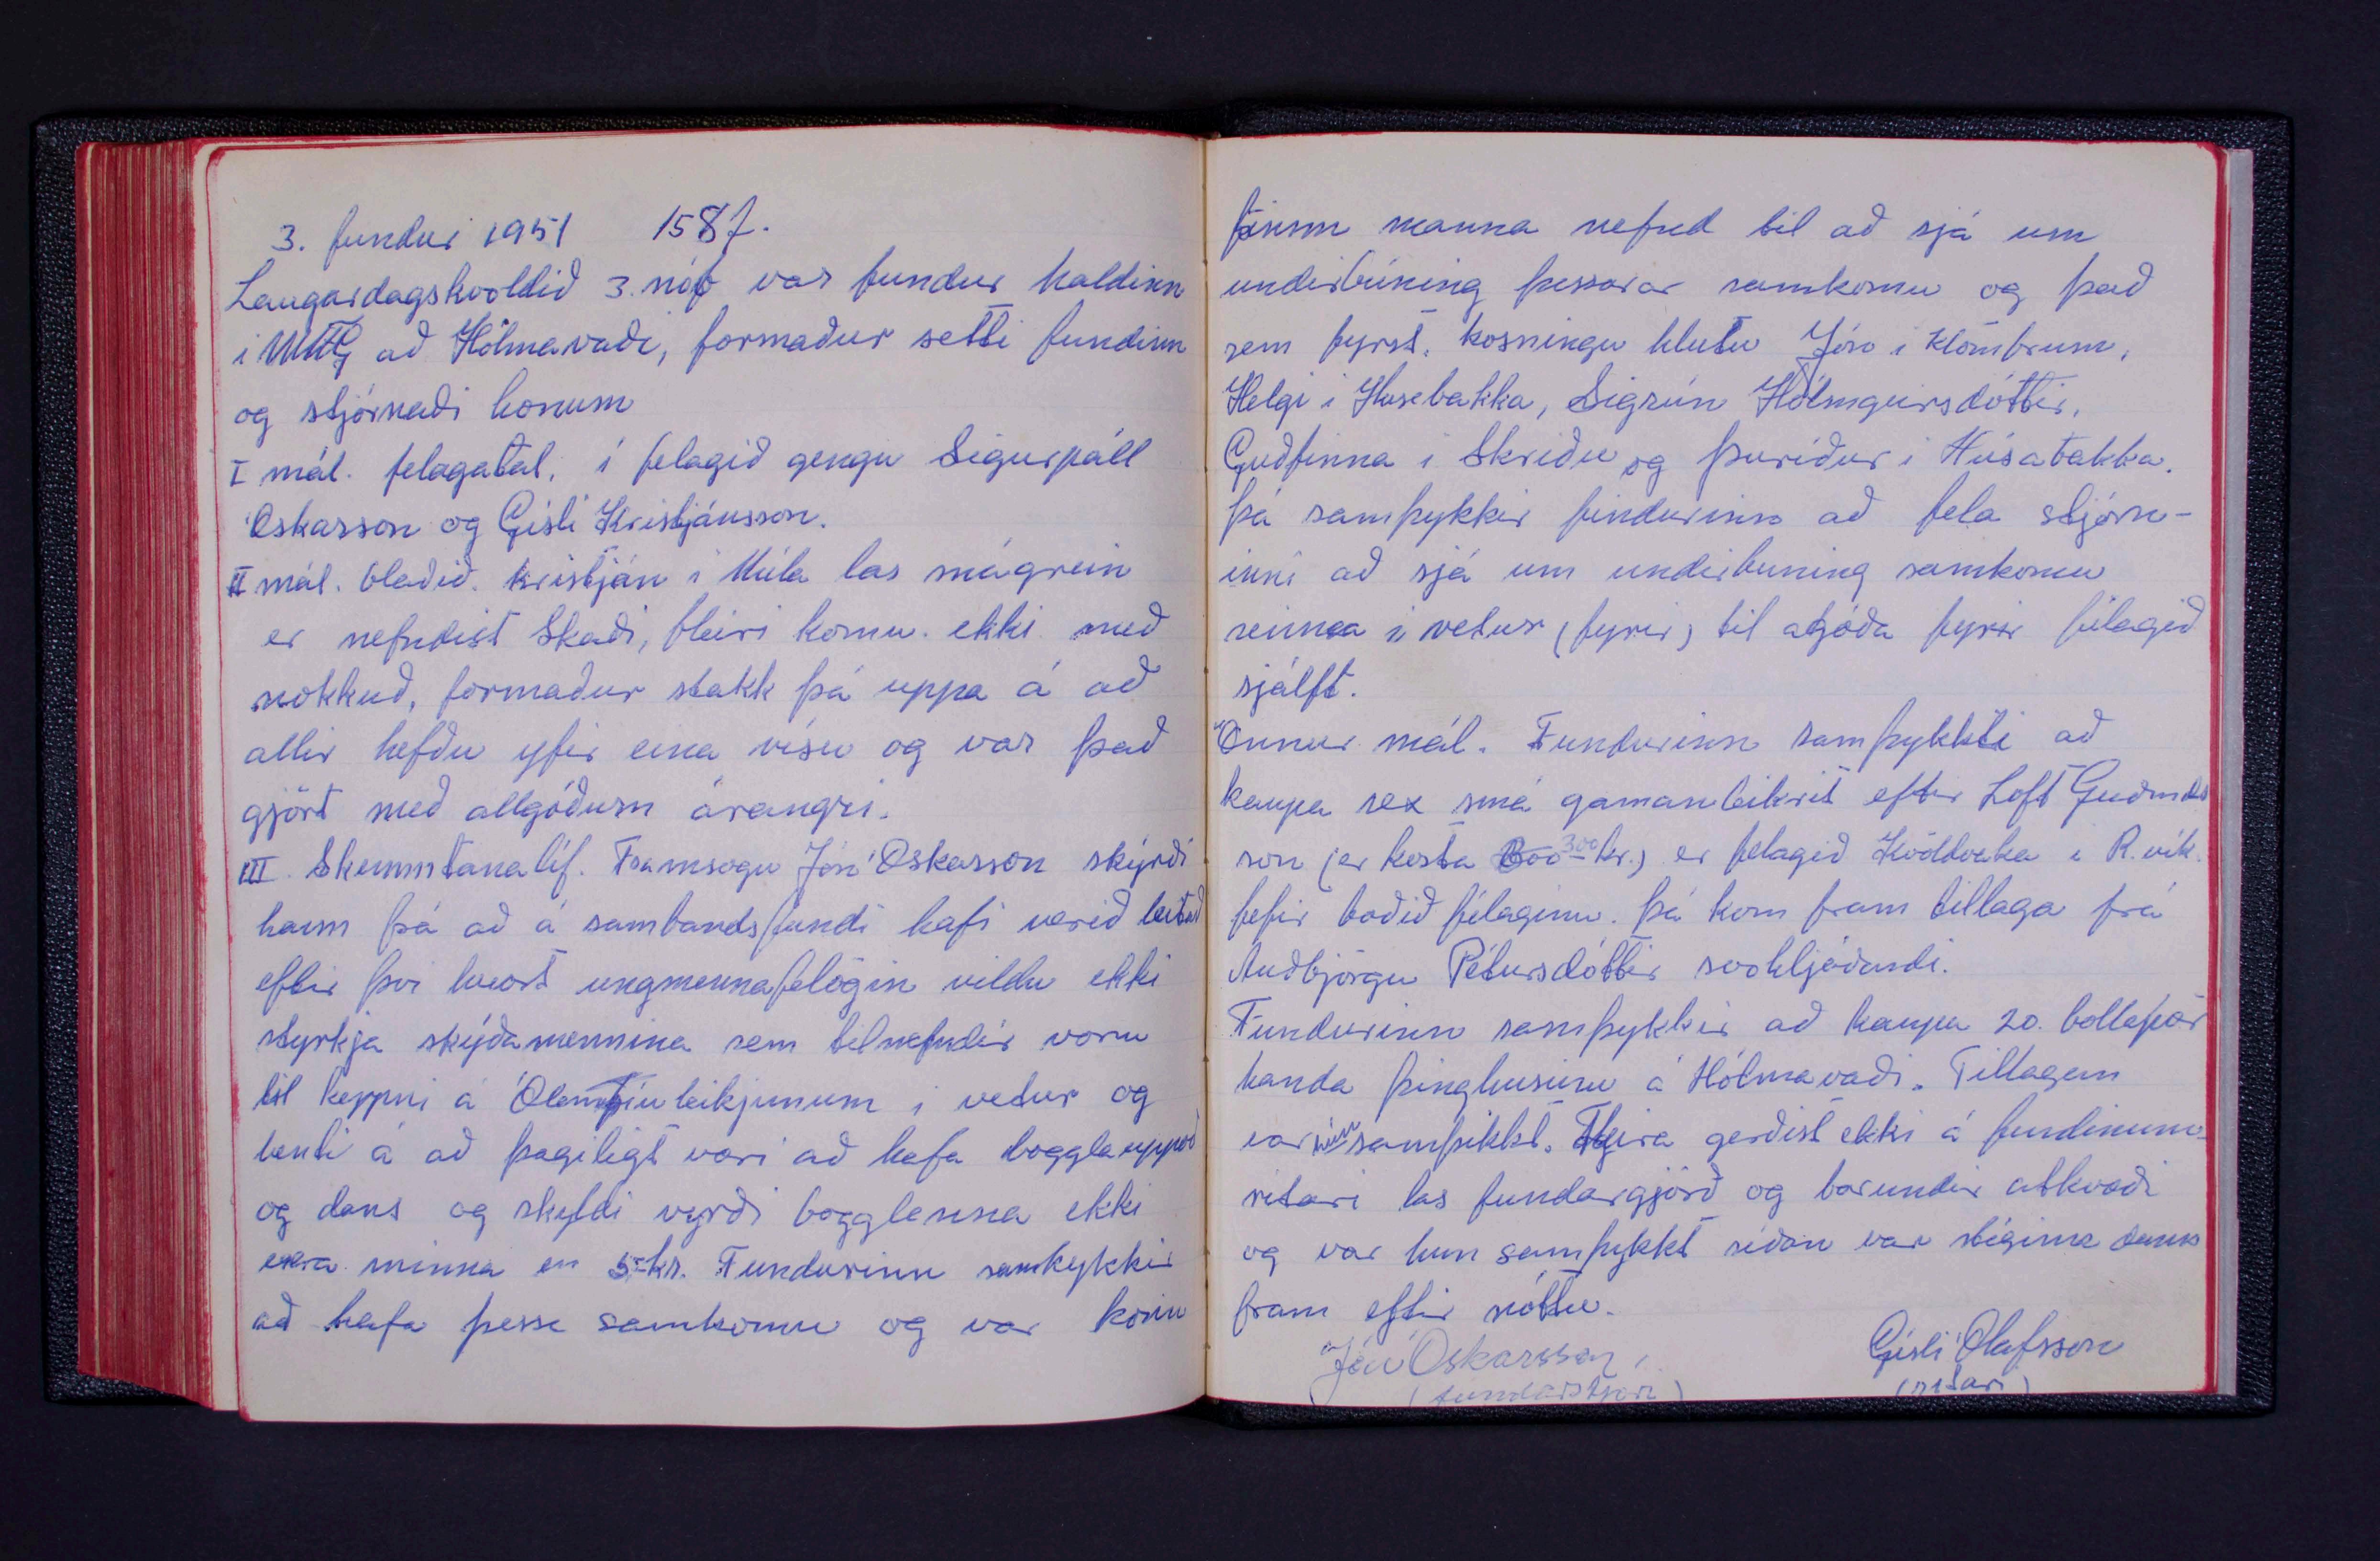 3. fundur 1951 158f.
Laugardagskvoldið 3. nóv var fundur haldinn
i að Hólmavaði, formaður setti fundinn
og stjórnaði honum
I mál. felagatal, í felagið gengu Sigurpáll
Óskarsson og Gísli Kristjánsson.
II mál. blaðið. Kristján í Múla las smágrein
er nefndist Skaði, fleiri komu ekki með
nokkuð, formaður stakk þá uppa á að
allir hefðu yfir eina vísu og var það
gjört með allgóðum árangri.
III. Skemmtanalíf. Framsogu Jón Óskarsson skýrði
hann frá að á sambandsfundi hafi verið leitað
eftir þvi hvort ungmennafelögin vildu ekki
styrkja skýðamennina sem tilnefndir voru
til keppni á Ólempíuleikjunum i vetur og
benti á að þægiligt væri að hafa bögglauppoð
og dans og skyldi vyrði bögglenna ekki
vera minna en 5 kr. Fundurinn samþykkir
að hafa þessa samkomu og var kosin
fimm manna nefnd til að sjá um
undirbúning þessarar samkomu og það
sem fyrst. kosningu hlutu Jón i Klömbrum,
Helgi i Husabakka, Sigrún Hólmgeirsdóttir,
Guðfinna i Skriðu og Þuríður i Húsabakka.
Þá samþykkir fundurinn að fela stjórn-
inni að sjá um undirbuning samkomu
seinna i vetur (fyrir) til agóða fyrir félagið
sjálft.
Önnur mál. Fundurinn samþykkti að
kaupa sex smá gamanleikrit eftir Loft Guðmds
son (er kosta 300 kr.) er felagið Kvöldvaka i R.vík.
hefir boðið félaginu. Þá kom fram tillaga frá
Auðbjörgu Pétursdóttir svohljóðandi.
Fundurinn samþykkir að kaupa 20. bollapör
handa þinghusinu á Hólmavaði. Tillagan
var samþikkt. Fleira gerðist ekki á fundinum
ritari las fundargjörð og bar undir atkvæði
og var hun samþykkt síðan var stiginn dans
fram eftir nóttu.
Jón Óskarsson, Gísli Ólafsson
(fundarstjóri) (ritari)